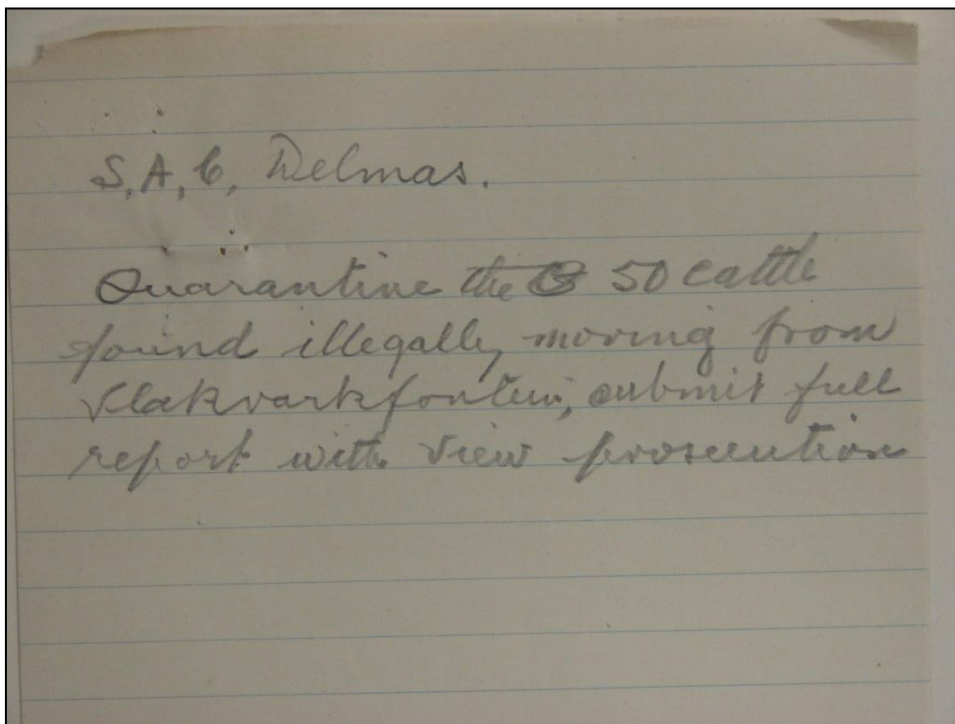 S,A,C, Delmas.
Quarantine the 50 cattle
found illegally moving from
Vlakvarkfontein, submit full
report with view prosecution